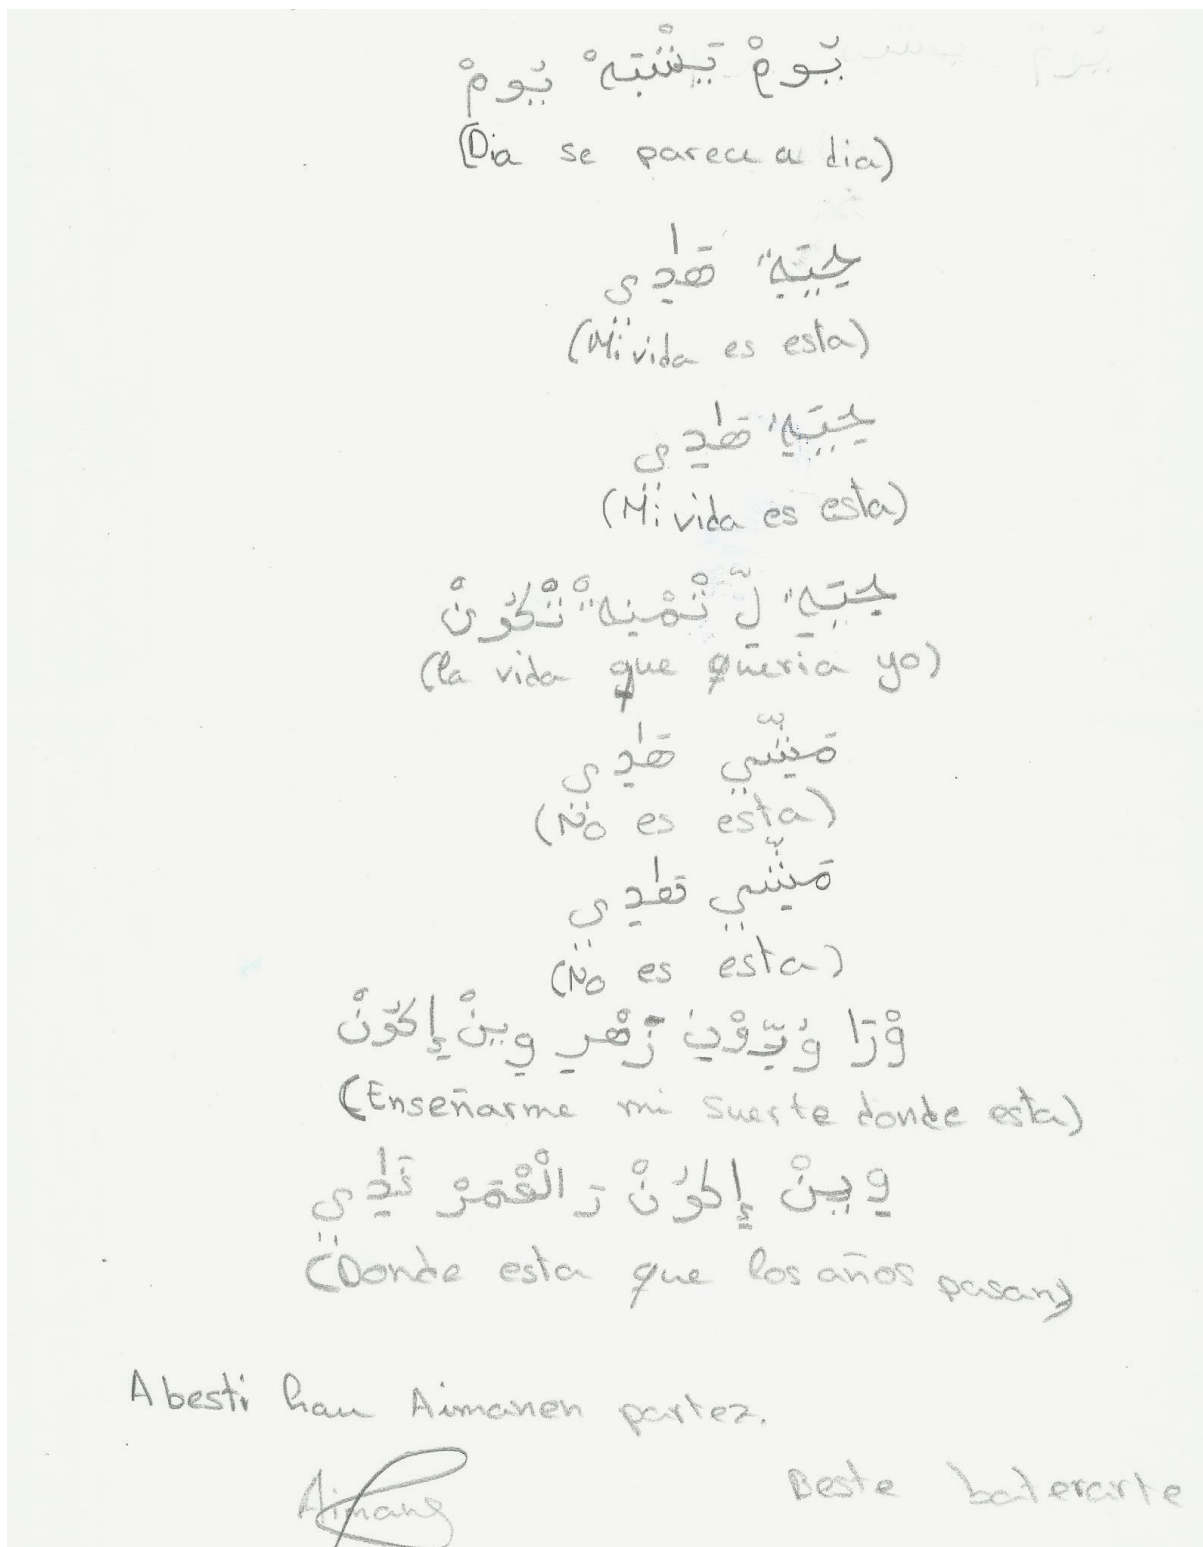 يَومْ يَشْبَهْ يَومْ
(Dia se parece a dia)
هٰدِي
(Mi vida es esta)
هٰدِي
(Mi vida es esta)
لِّ تْكُونْ
(la vida que queria yo)
مَشِّي هٰدِي
(No es esta)
مَشِّي هٰدِي
(No es esta)
زَهْرِ وِينْ إِكُونْ
(Enseñarme mi suerte donde esta)
وِينْ إِكُونْ رَ الْعُمَرْ
(Donde esta que los años pasan)
Abesti hau Aimanen partez.
Aimane Beste baterarte